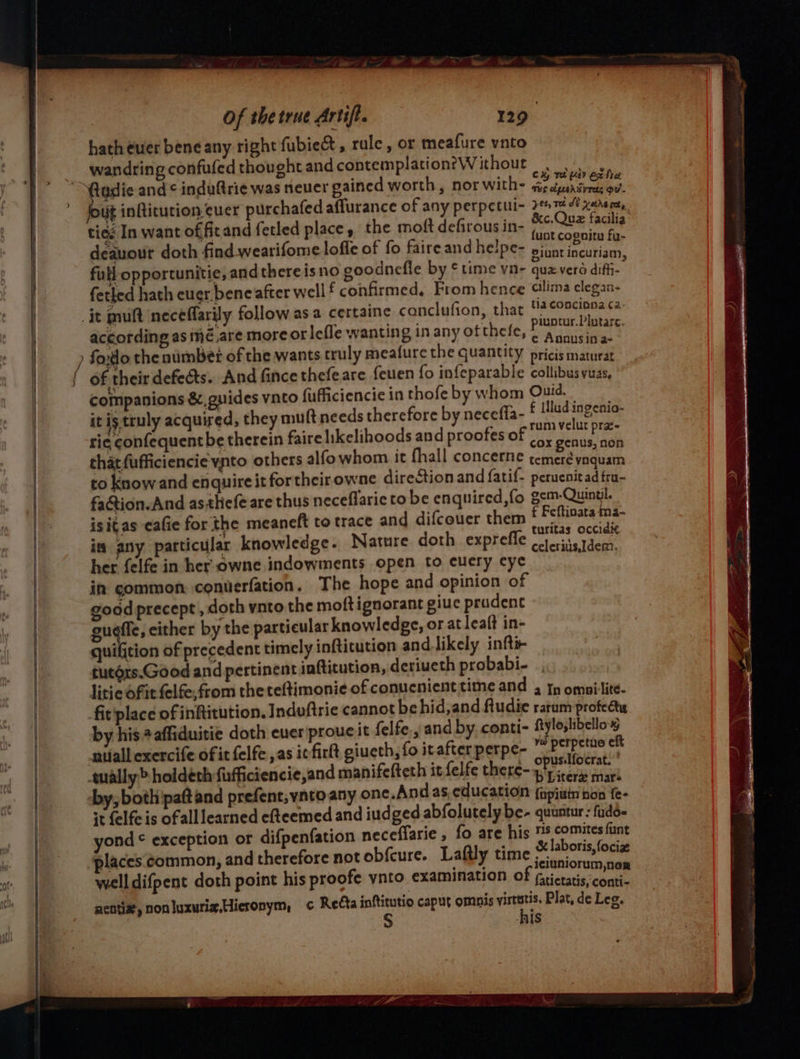 Of the true Artiſt. 129
hath euer bene any right ſubiect, rule, or meaſure vnto
wandring confuſed thought and contemplation? Without
ſtudie and c induſtrie was neuer gained worth, nor with-
out inſtitution euer purchaſed aſſurance of any perpetui-
tie: In want of fit and ſetled place, the moſt deſirous in-
deauour doth find weariſome loſſe of ſo faire and helpe-
full opportunitie, and there is no goodneſſe by e time vn-
ſetled hath euer bene after well f confirmed. From hence
it muſt neceſſarily follow as a certaine concluſion, that
according as more or leſſe wanting in any of theſe,
ſo do the number of the wants truly meaſure the quantity
of their defects. And ſince theſe are ſeuen ſo inſeparable
companions & guides vnto ſufficiencie in thoſe by whom
it is truly acquired, they muſt needs therefore by neceſſa-
rie conſequent be therein faire likelihoods and proofes of
that ſufficiencie vnto others alſo whom it ſhall concerne
to know and enquire it for their owne direction and ſatiſ-
faction. And as theſe are thus neceſſarie to be enquired, ſo
is it as eaſie for the meaneſt to trace and diſcouer them
in any particular knowledge. Nature doth expreſſe
her ſelfe in her owne indowments open to euery eye
in common conuerſation. The hope and opinion of
good precept, doth vnto the moſt ignorant giue prudent
gueſſe, either by the particular knowledge, or at leaſt in-
quiſition of precedent timely inſtitution and likely inſti-
tutors. Good and pertinent inſtitution, deriueth probabi-
litie of it ſelfe, from the teſtimonie of conuenient time and
fit place of inſtitution. Induſtrie cannot be hid, and ſtudie
by his a aſſiduitie doth euer proue it ſelfe, and by conti-
nuall exerciſe of it ſelfe, as it firſt giueth, ſo it after perpe-
tually b holdeth ſufficiencie, and manifeſteth it ſelfe there-
by, both paſt and preſent, vnto any one. And as education
it ſelfe is of all learned eſteemed and iudged abſolutely be-
yond c exception or diſpenſation neceſſarie, ſo are his
places common, and therefore not obſcure. Laſtly time
well diſpent doth point his proofe vnto examination of
S his
&c. Quæ facilia
ſunt cognitu fu-
giunt incuriam,
quæ verò diffi-
cilima elegan-
tia concinna ca-
piuntur. Plutarc.
e Annus in a-
pricis maturat
collibus vuas,
Ouid.
f Illud ingenio-
rum velut præ-
cox genus, non
temerè vnquam
peruenit ad fru-
gem. Quintil.
f Feſtinata ma-
turitas occidit
celeriùs, Idem.
a In omni lite-
rarum profectu
ſtylo, libello &
perpetuo eſt
opus. Iſocrat.
b Literæ mar-
ſupium non ſe-
quuntur: ſudo-
ris comites ſunt
& laboris, ſociæ
ieiuniorum, non
ſatietatis, conti-
nentiæ, non luxuriæ. Hieronym, c Recta inſtitutio caput omnis virtutis. Plat, de Leg.